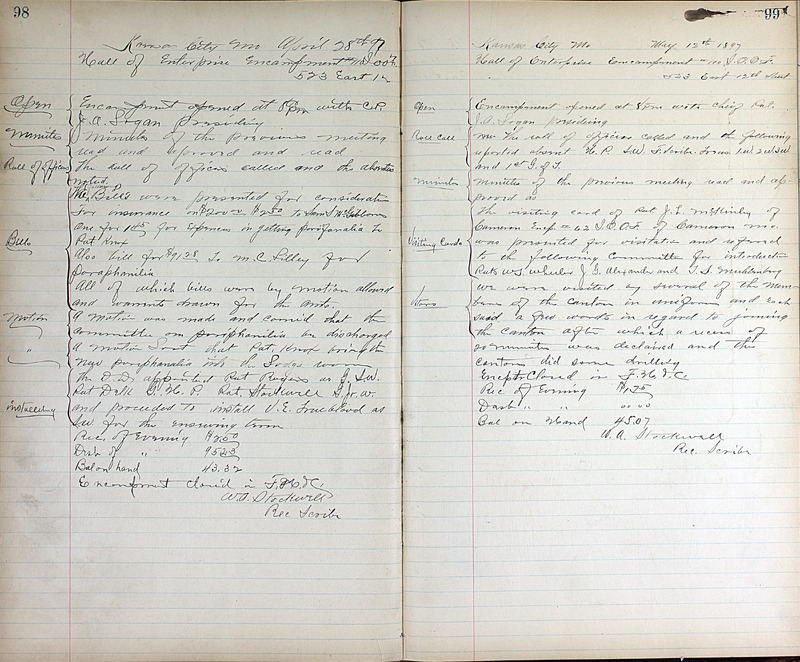 98
Kansas City Mo April 28th 97
Hall of Enterprise Encampment
523 East 12
Open
Encampment opened at 8pm with C.P.
J.A. Logan presiding
Minutes
Minutes of the previous meeting
read and approved and read
Roll of officers
The roll of officers called and the absentees
noted.
The Bills were presented for consideration
For insurance on $200 $2.50 to Saml McGibbons
One for for expenses in getting parfanalia to
Pat Knox
Bills
Also bill for $91.28 To M.C. Lilley for
paraphanilia
All of which bills were by motion allowed
and warrants drawn for the amts.
Motion
A Motion was made and carried that the
committee on paraphanilia be discharged
"
A motion that Pat. Knox bring the
new paraphanalia into the Lodge room
the D.D. appointed Pat Rogers as G.S.W.
Pat G.H.P. Pat. Stockwell G.J.W.
Installing
and proceeded to install V.E. Trueblood as
SW for the ensuing term
Rec. of Evening $2.50
Disb of " 95.23
Bal on hand 43.32
Encampment closed in F.H.&C.
W.A. Stockwell
Rec Scribe
99
Kansas City Mo May 12th 1897
Hall of Enterprise Encampment I.O.O.F.
523 East 12th Street
Open
Encampment opened at 8pm with Chief Pat.
J.A. Logan presiding
Roll Call
The roll of officers called and the following
reported absent H.P. S.W. F. Scribe. Treas 1.W 2.W 3.W
and 1st G. of T.
Minutes
Minutes of the previous meeting read and ap-
proved as
The visiting card of Pat J.L. McKinley of
Cameron Encp # 62 I.O.O.F. of Cameron Mo.
Visiting Cards
was presented for visitation and referred
to the following Committee for introduction
Pats W.S. Wheeler J.G. Alexander and T.S. Muhlenburg
we were visited by several of the Mem-
bers of the canton in uniform and each
said a few words in regard to joining
the Canton after which a recess of
20 minutes was declared and the
cantons did some drilling
Encpt Closed in F.H.&C.
Rec of Evening $1.75
Disb " " 00 00
Bal on Hand 45.07
W.A. Stockwell
Rec. Scribe